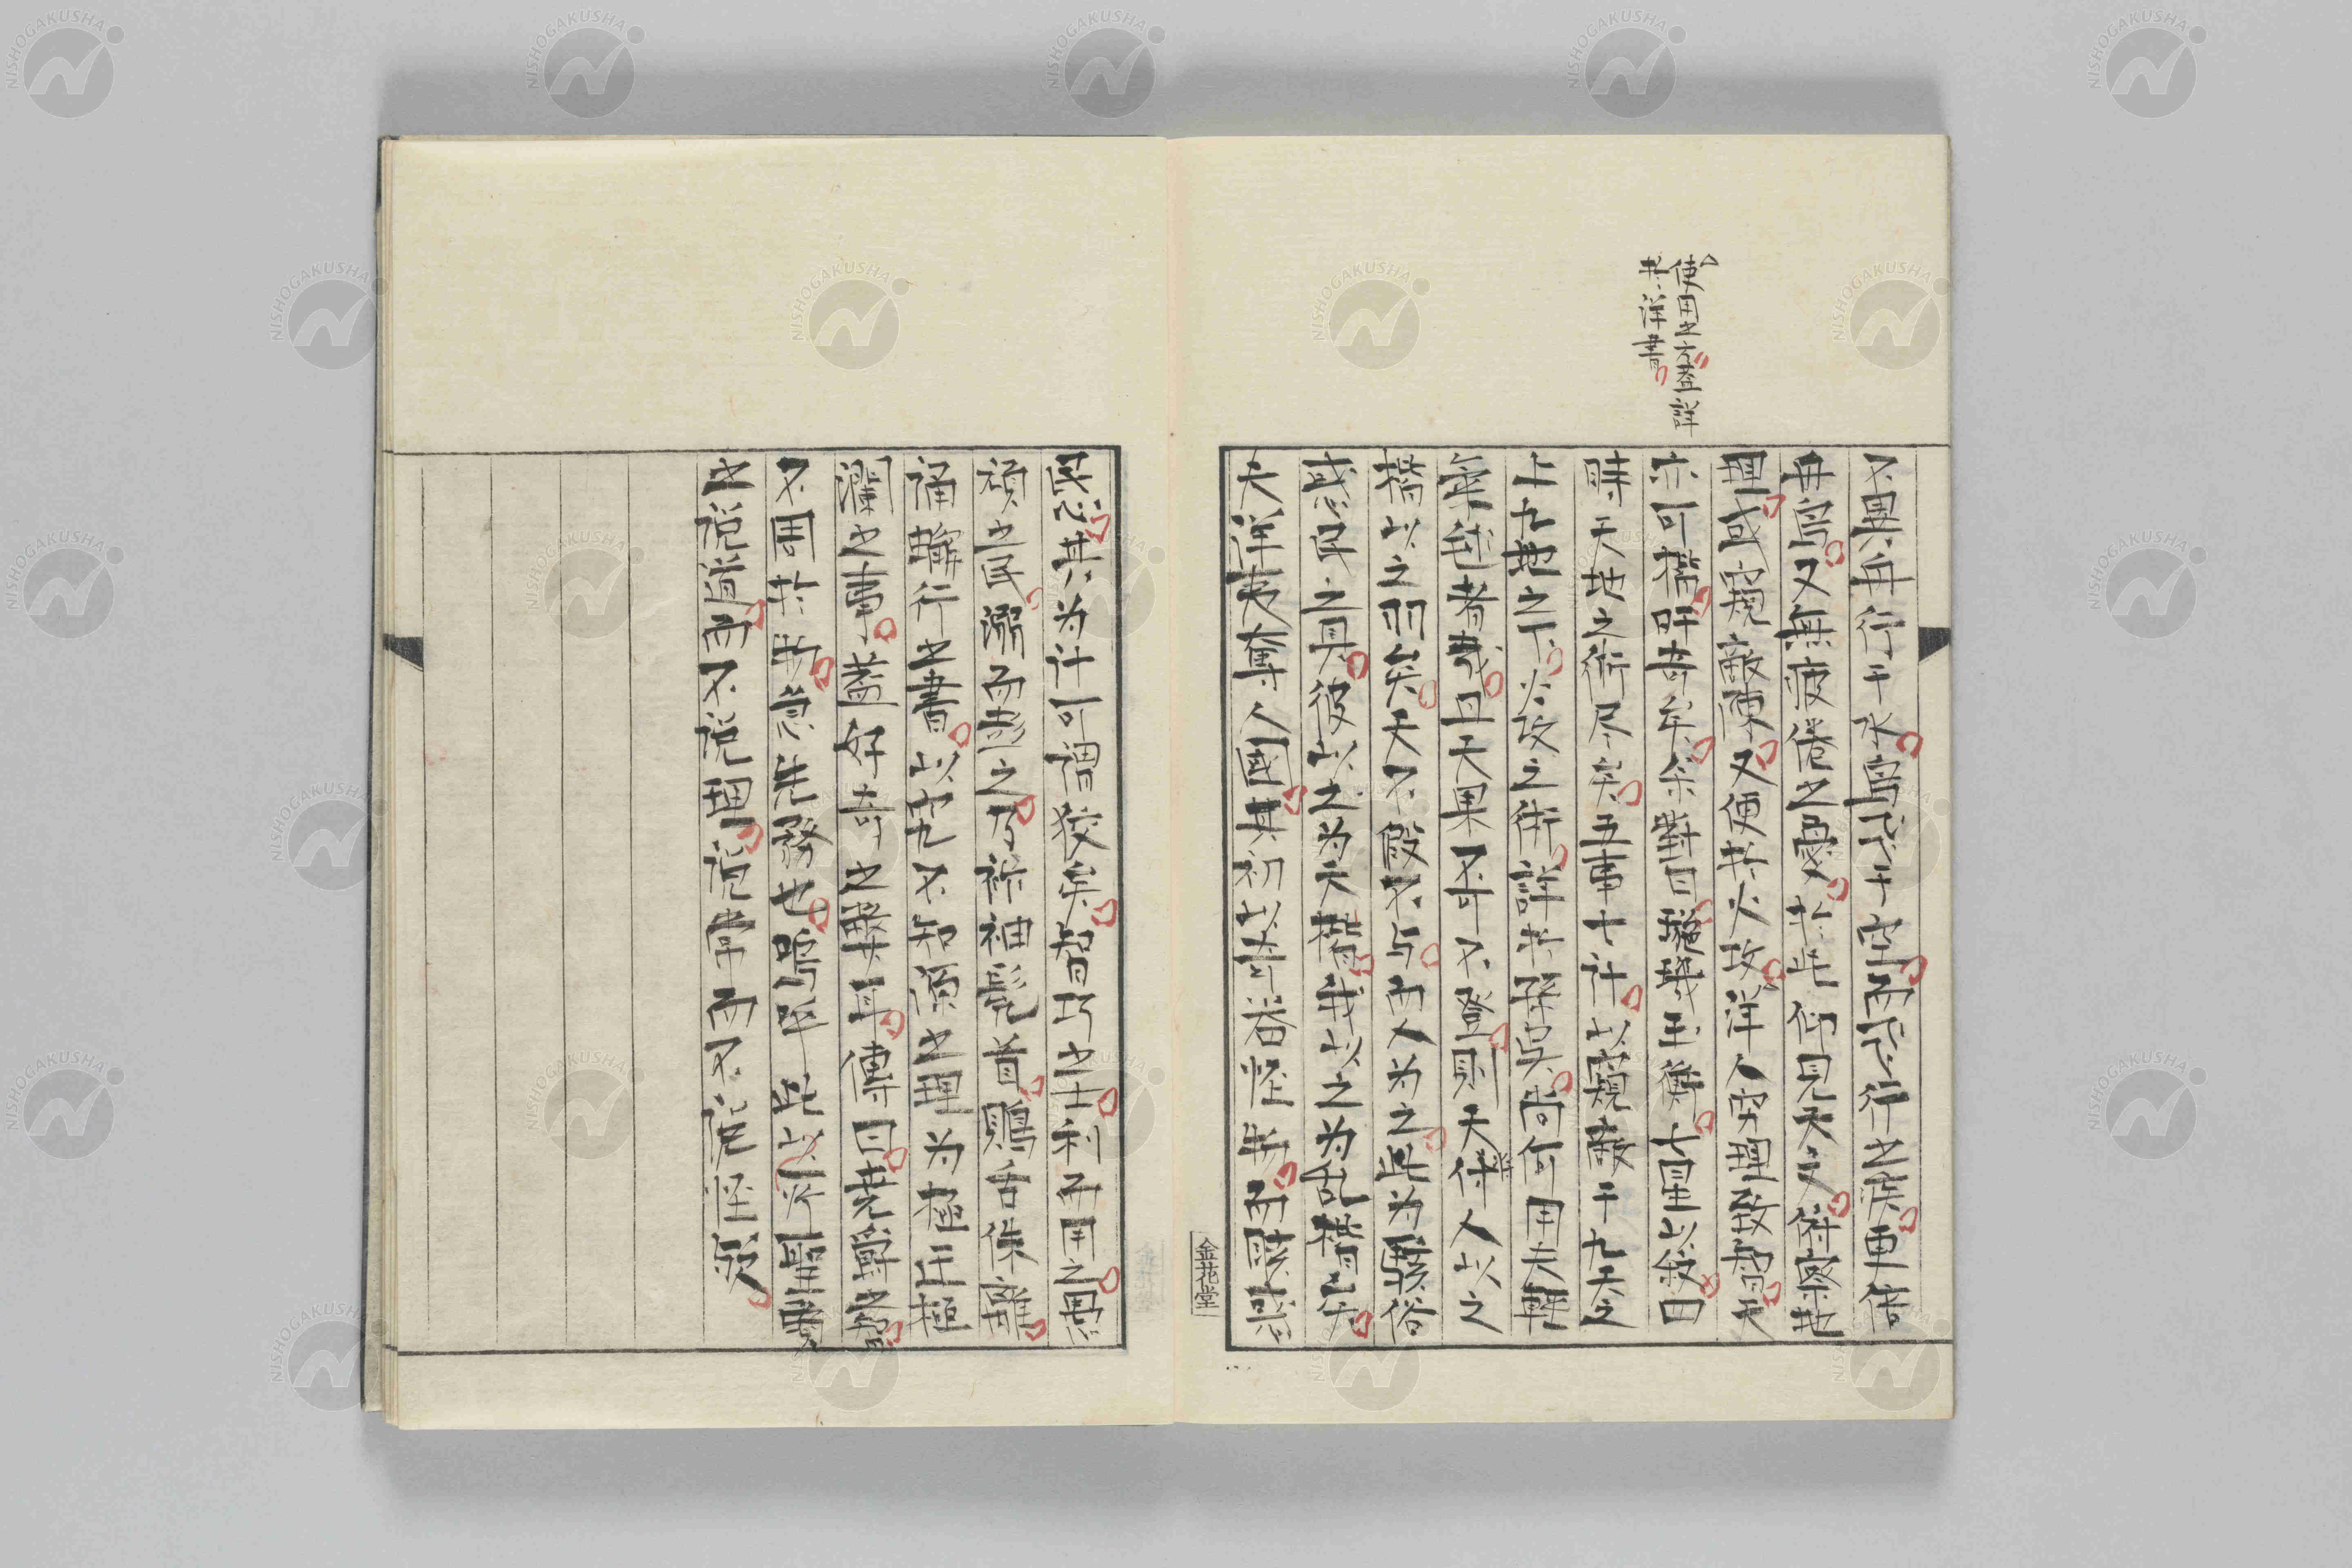 使用之太奢詳
於洋書
不異舟行于水寫然于空而然行之疾更倍
舟焉又無疲倦之憂於此仰見天文俯察地
理或窺敵陳又便於火攻洋人窮理致智夫
亦可稽吁奇矣余對曰璣璣玉衡七星以敘日
時天地之術尽矣五事七計以窺敵于九天之
上九地之下火攻之術詳於孫吳尚何用夫輕
氣毬者哉且天果不可不登則天俾人以之
楷以之羽矣天不假不与而人為之是為駭俗
惑民之具彼以之為天楷我以之為乱楷矣
夫洋夷奪人國其初以奇器怪物而駭惑
民心其為計可謂狡矣智巧之士利而用之愚
頑之民溺而惑之乃袗袖髡首鴃舌侏離
誦蠏行之書以究不知原之理為極正極
瀾之事蓋好奇之弊耳傳曰堯舜之智
不周於物急先務也嗚呼此以所聖賢
之說道而不說理說常而不說怪歟
金花堂